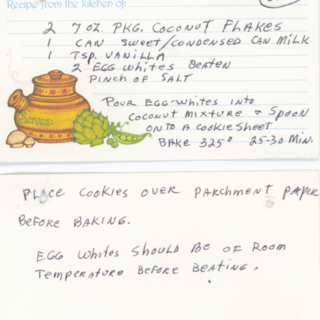 Recipe from the kitchen of:
2 7 OZ. PKG. COCONUT FLAKES
1 CAN SWEET/CONDENSED CAN MILK
1 TSP. VANILLA
2 EGG WHITES BEATEN
PINCH OF SALT
Serves:
POUR EGG-WHITES INTO
COCONUT MIXTURE & SPOON
ONTO A COOKIE SHEET
BAKE 325° 25-30 MIN.
PLACE COOKIES OVER PARCHMENT PAPER
BEFORE BAKING.
EGG WHITES SHOULD BE OF ROOM
TEMPERATURE BEFORE BEATING.